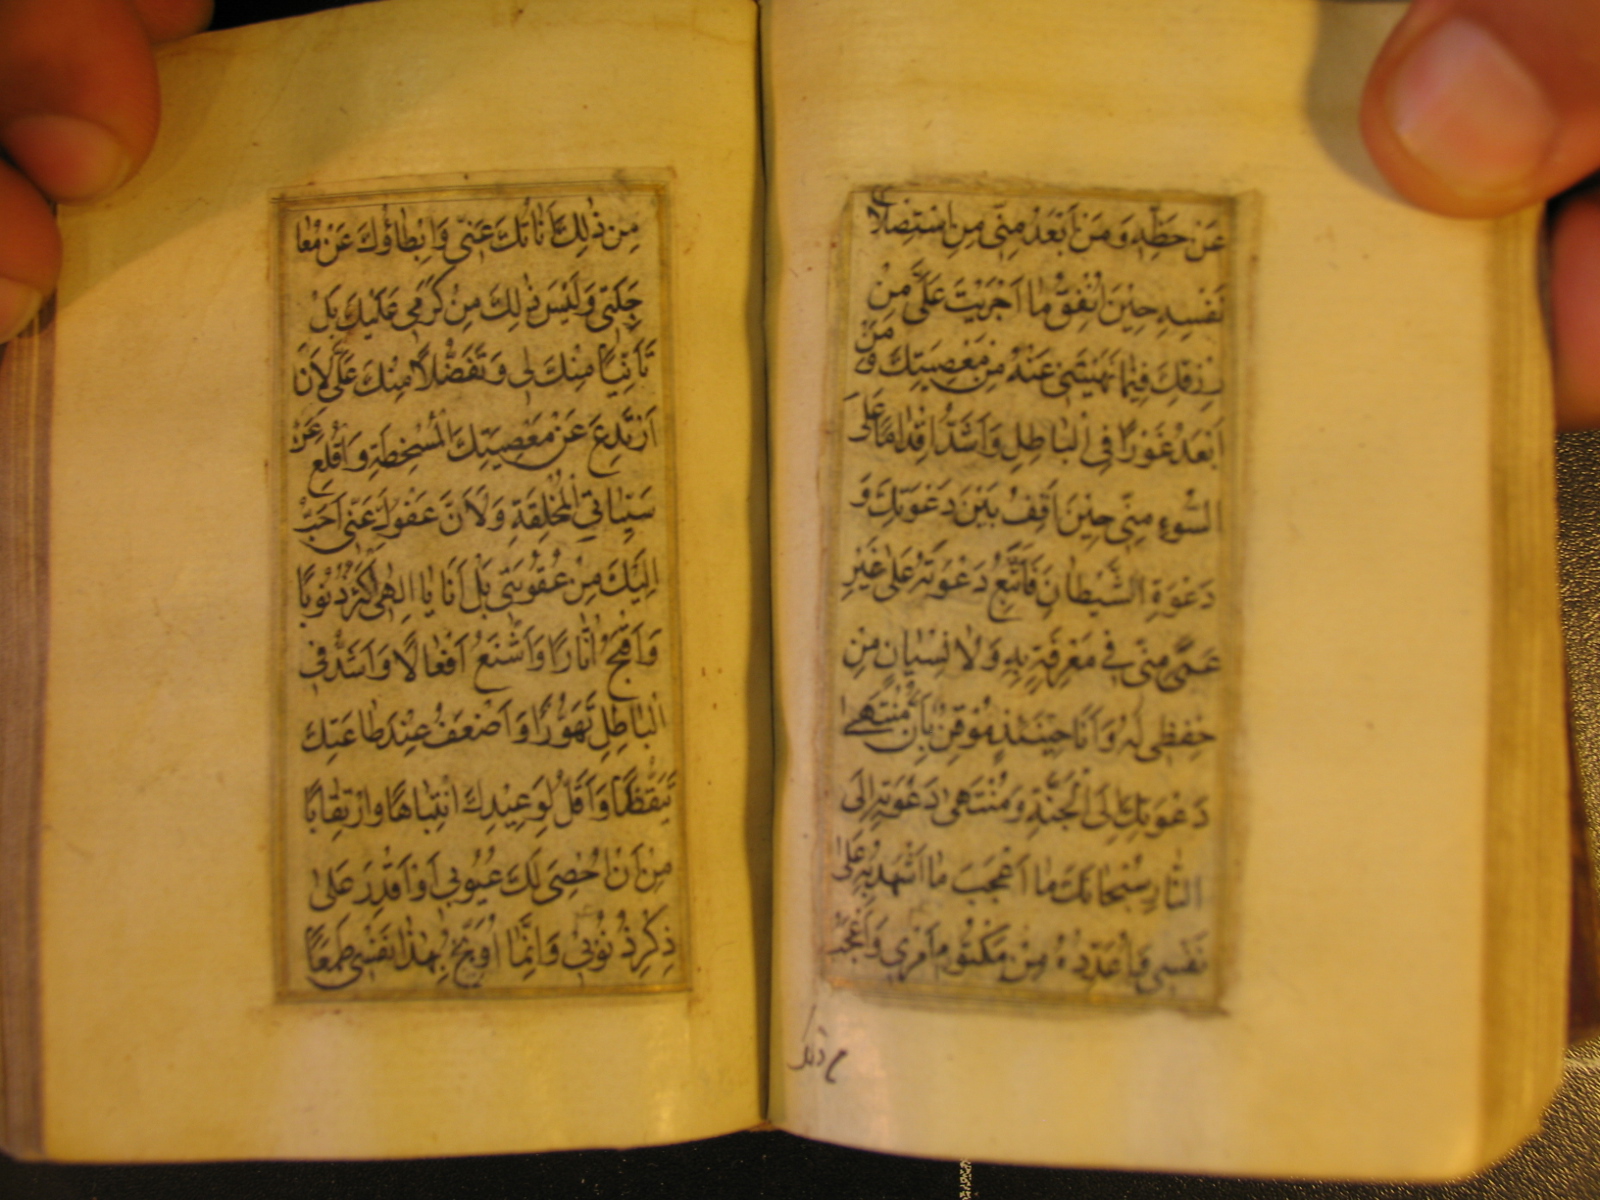 عَنْ حَظِّهِ وَمَنْ اَبْعَدُ مِنّى مِنِ اسْتِصْلاحِ
نَفْسِهِ حينَ اُنْفِقُ ما اَجْرَيْتَ عَلَىَّ مِنْ
رِزْقِكَ فيما نَهَيْتَنى عَنْهُ مِنْ مَعْصِيَتِكَ وَ مَنْ
اَبْعَدُ غَوْرًا فِى الْباطِلِ وَاَشَدُّ اِقْدامًا عَلَى
السُّوءِ مِنّى حينَ اَقِفُ بَيْنَ دَعْوَتِكَ وَ
دَعْوَةِ الشَّيْطانِ فَاَتَّبِعُ دَعْوَتَهُ عَلى غَيْرِ
عَمًى مِنّى فى مَعْرِفَةٍ بِهِ وَلا نِسْيانٍ مِنْ
حِفْظى لَهُ وَاَنَا حينَئِذٍ مُوقِنٌ بِاَنَّ مُنْتَهى
دَعْوَتِكَ اِلَى الْجَنَّةِ وَمُنْتَهى دَعْوَتِهِ اِلَى
النّارِ سُبْحانَكَ ما اَعْجَبَ ما اَشْهَدُ بِهِ عَلى
نَفْسى وَاُعَدِّدُهُ مِنْ مَكْتُومِ اَمْرى وَاَعْجَبُ
مِنْ ذلِكَ اَناتُكَ عَنّى وَاِبْطاؤُكَ عَنْ مُعا
جَلَتى وَلَيْسَ ذلِكَ مِنْ كَرَمى عَلَيْكَ بَلْ
تَاَنِّيًا مِنْكَ لى وَتَفَضُّلًا مِنْكَ عَلَىَّ لِاَنْ
اَرْتَدِعَ عَنْ مَعْصِيَتِكَ الْمُسْخِطَةِ وَاُقْلِعَ عَنْ
سَيِّئاتِى الْمُخْلِقَةِ وَلِاَنَّ عَفْوَكَ عَنّى اَحَبُّ
اِلَيْكَ مِنْ عُقُوبَتى بَلْ اَنَا يا اِلهى اَكْثَرُ ذُنُوبًا
وَاَقْبَحُ اثارًا وَاَشْنَعُ اَفْعالًا وَاَشَدُّ فِى
الْباطِلِ تَهَوُّرًا وَاَضْعَفُ عِنْدَ طاعَتِكَ
تَيَقُّظًا وَاَقَلُّ لِوَعيدِكَ انْتِباهًا وَارْتِقابًا
مِنْ اَنْ اُحْصِىَ لَكَ عُيُوبى اَوْ اَقْدِرَ عَلى
ذِكْرِ ذُنُوبى وَاِنَّما اُوَبِّخُ بِهذا نَفْسى طَمَعًا